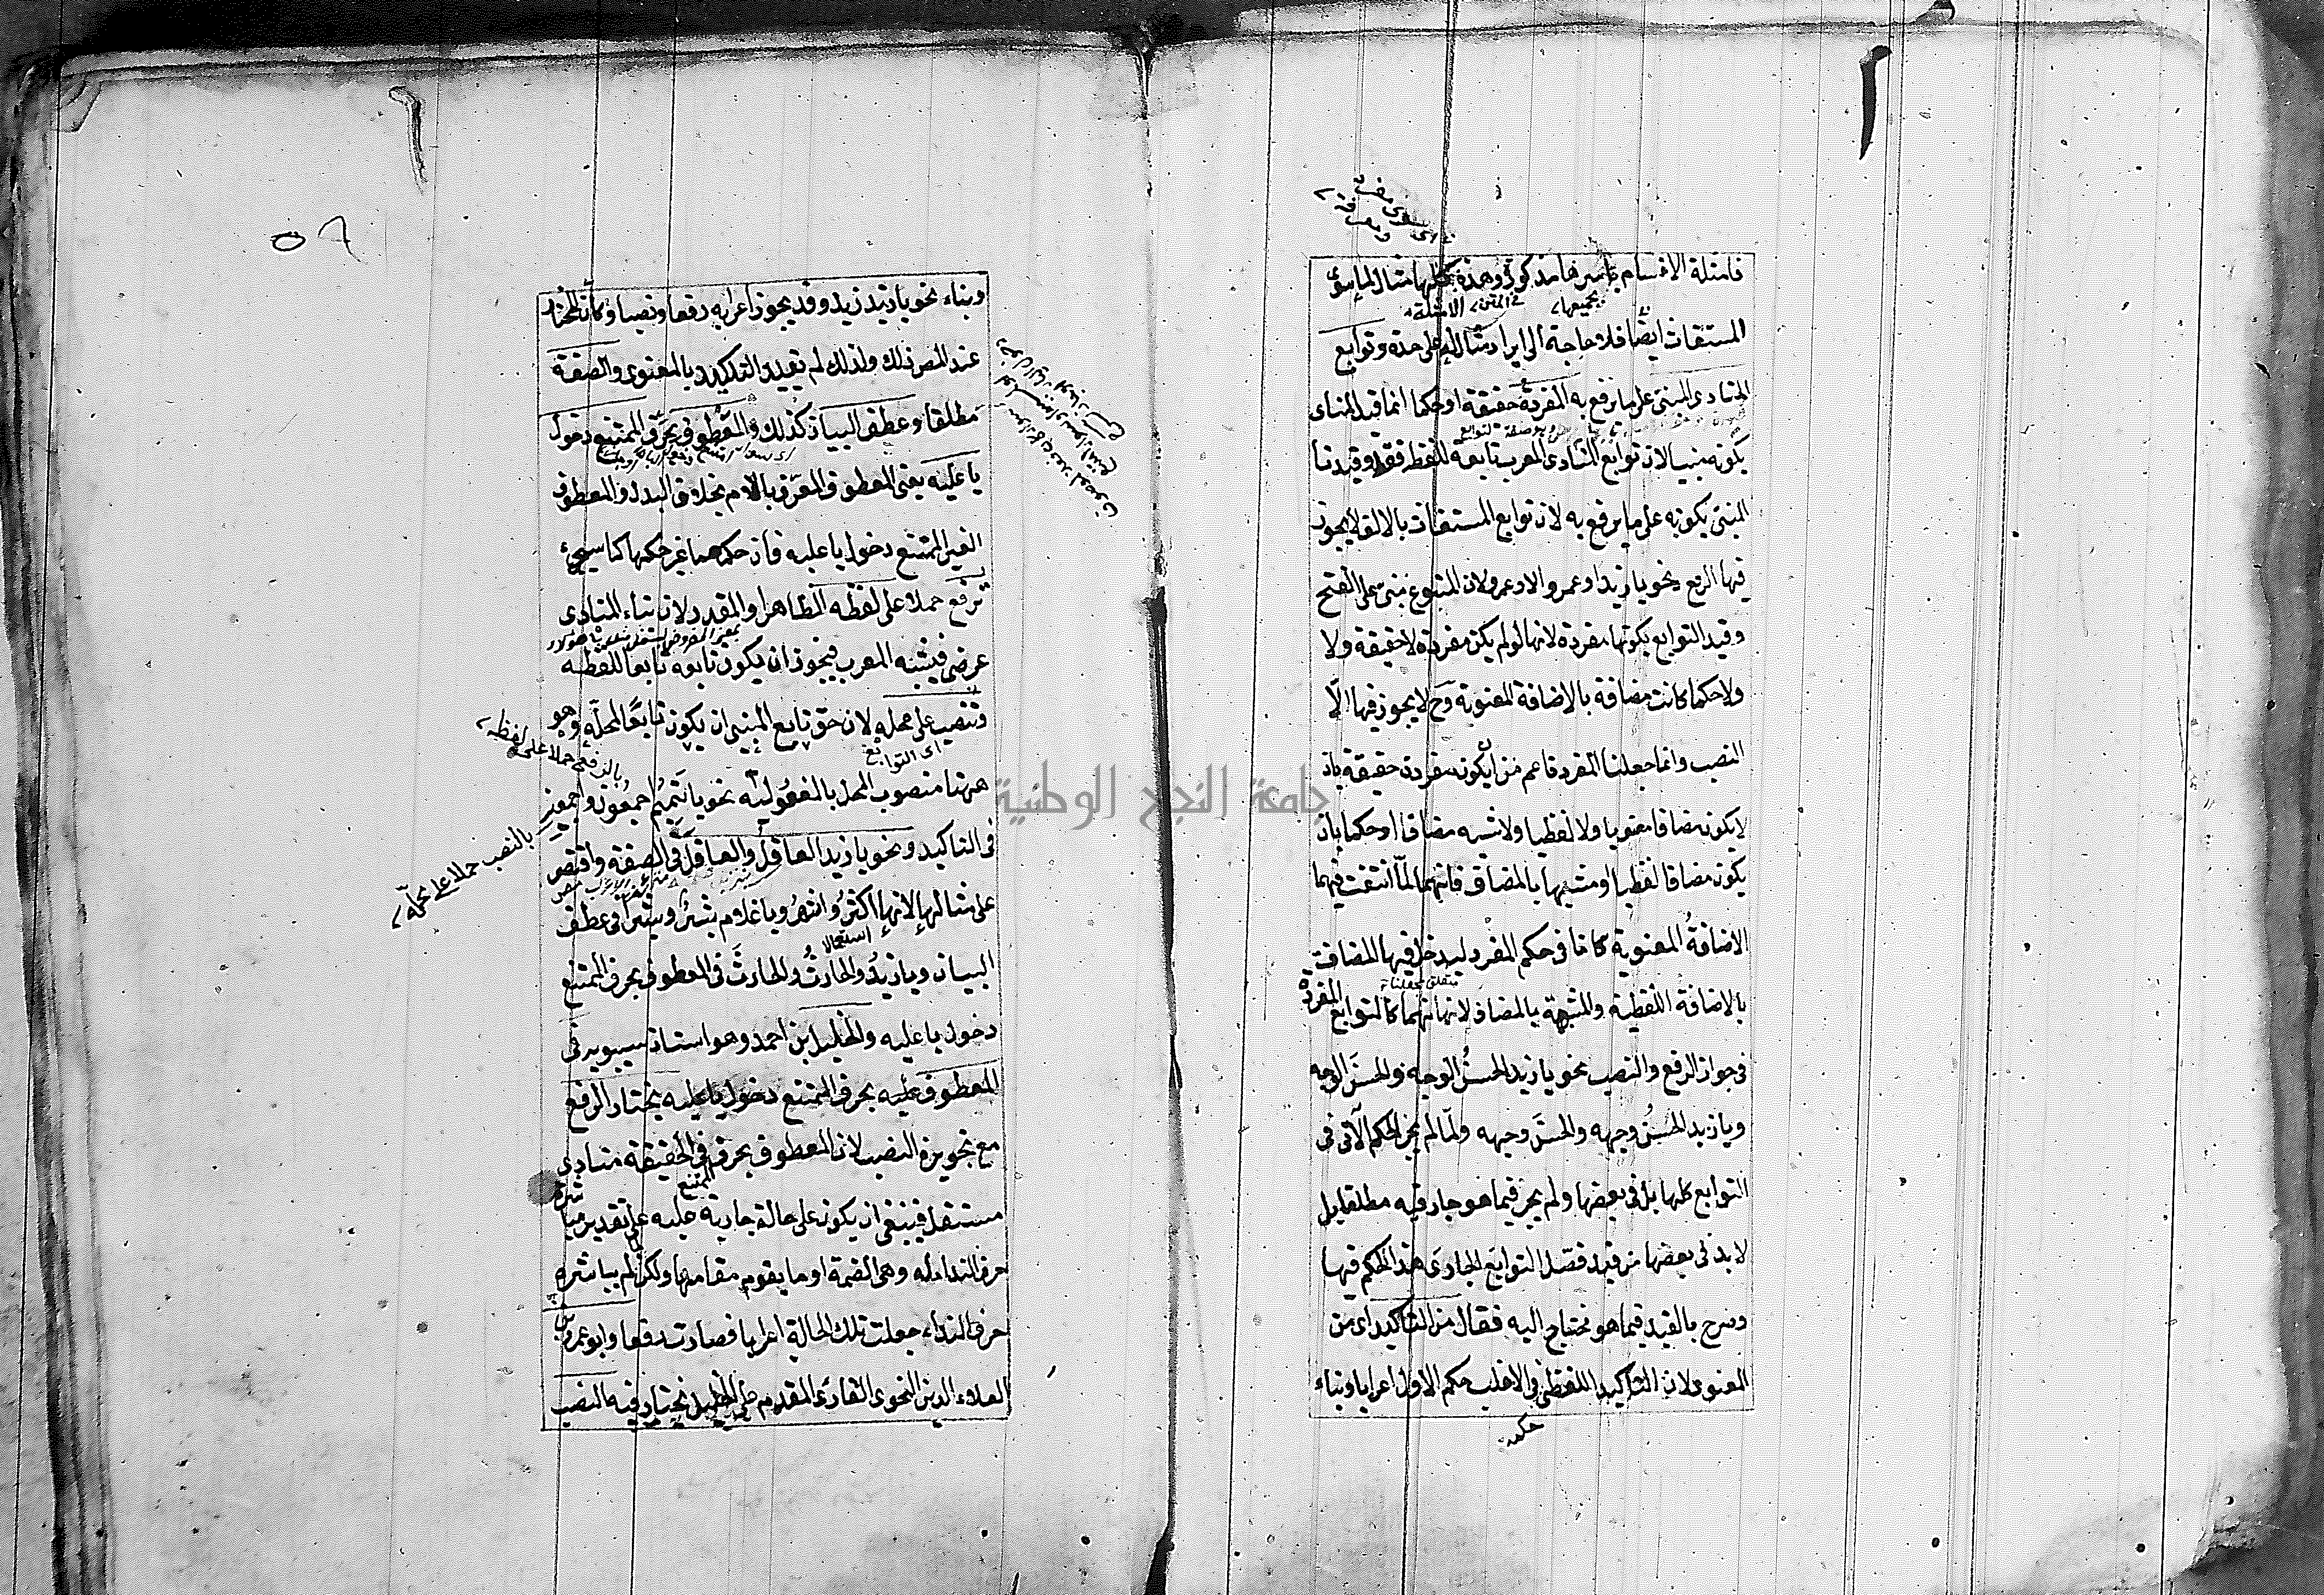 فامثلة الاقسام باسرها مذكورة وهذه كلها مثال لما سوى
بجميعها
في المتن
الامثلة
المستغاث ايضا فلا حاجة الى ايراد مثال له على حدة وتوابع
المنادى المبنى على ما يرفع به المفردة حقيقة او حكما انما قيد المنادى
بكونه مبنيا لان توابع المنادى المعرب تابعة للفظه فقط وقيدنا
المبنى بكونه على ما يرفع به لان توابع المستغاث بالالف لا يجوز
فيها الرفع نحو يا زيدا وعمرو الا وعمرو لان المتبوع مبنى على الفتح
وقيد التوابع بكونها مفردة لانها لو لم يكن مفردة لا حقيقة ولا
ولا حكما كانت مضافة بالاضافة المعنوية وح لا يجوز فيها الا
النصب وانما جعلنا المفرد اعم من ان يكون مفردة حقيقة بان
لا يكون مضافا معنويا ولا لفظيا ولا شبه مضاف او حكما بان
يكون مضافا لفظيا او مشبها بالمضاف فانهما لما انتفت فيهما
الاضافة المعنوية كانا في حكم المفرد ليدخل فيها المضافة
متعلق بجعلنا
بالاضافة اللفظية والمشبهة بالمضاف لانهما كالتوابع المفردة
في جواز الرفع والنصب نحو يا زيد الحسنُ الوجه والحسنَ الوجه
ويا زيد الحسنُ وجهه والحسنَ وجهه ولما لم يجر الحكم الآتى في
التوابع كلها بل في بعضها ولم يجر فيما هو جار فيه مطلقا بل
لا بد في بعضها من قيد فصل التوابع الجارى هذا الحكم فيها
وصرح بالقيد فيما هو محتاج اليه فقال من التأكيد اى من
المعنوى لان التأكيد اللفظى في الاغلب حكم الاول اعرابا وبناء
حكمه
٥٩
وبناء نحو يا زيد زيد وقد يجوز اعرابه رفعا ونصبا وكأن المختار
عند المص ذلك ولذلك لم يقيد التأكيد بالمعنوى والصفة
مطلقا وعطف البيان كذلك والمعطوف بحرف الممتنع دخول
يا عليه يعنى المعطوف المعرف باللام بخلاف البدل والمعطوف
الغير الممتنع دخول يا عليه فان حكمهما غير حكمها كما سيجئ
ترفع حملا على لفظه الظاهر او المقدر لان بناء المنادى
عرضى فيشبه المعرب فيجوز ان يكون تابعه تابعا للفظه
وتنصب على محله لان حق تابع المبنى ان يكون تابعا لمحله وهو
اى التوابع
بالرفع حملا على لفظه
ههنا منصوب المحل بالمفعولية نحو يا تيم اجمعون واجمعين
بالنصب حملا على محله
في التأكيد ونحو يا زيد العاقلُ والعاقلَ في الصفة واقتصر
على مثالها لانها اكثر واشهر ويا غلام بشرٌ وبشرا في عطف
استعمالا
البيان ويا زيدُ والحارثُ والحارثَ في المعطوف بحرف الممتنع
دخول يا عليه والخليل ابن احمد وهو استاذ سيبويه في
المعطوف عليه بحرف الممتنع دخول يا عليه يختار الرفع
مع تجويزه النصب لان المعطوف بحرف في الحقيقة منادى
الممتنع
مستقل فينبغى ان يكون على حالة جارية عليه على تقدير مباشرة
حرف النداء له وهى الضمة او ما يقوم مقامها ولكن لما لم يباشره
حرف النداء جعلت تلك الحالة اعرابا فصارت رفعا وابو عمرو بن
العلاء النحوى القارئ المقدم على الخليل يختار فيه النصب
جامعة النجاح الوطنية